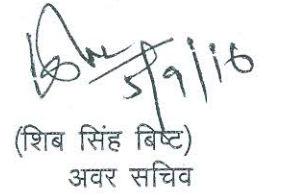 5/9/16
(शिब सिंह बिष्ट)
अवर सचिव